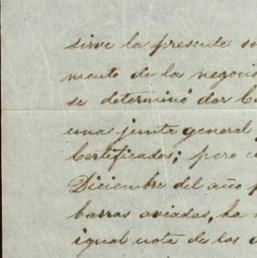 sirve la presente so
mento de la negoci
se determinó dar
una junta general
Certificados; pero
Diciembre del año p
barras aviadas, ha
igual nota de los